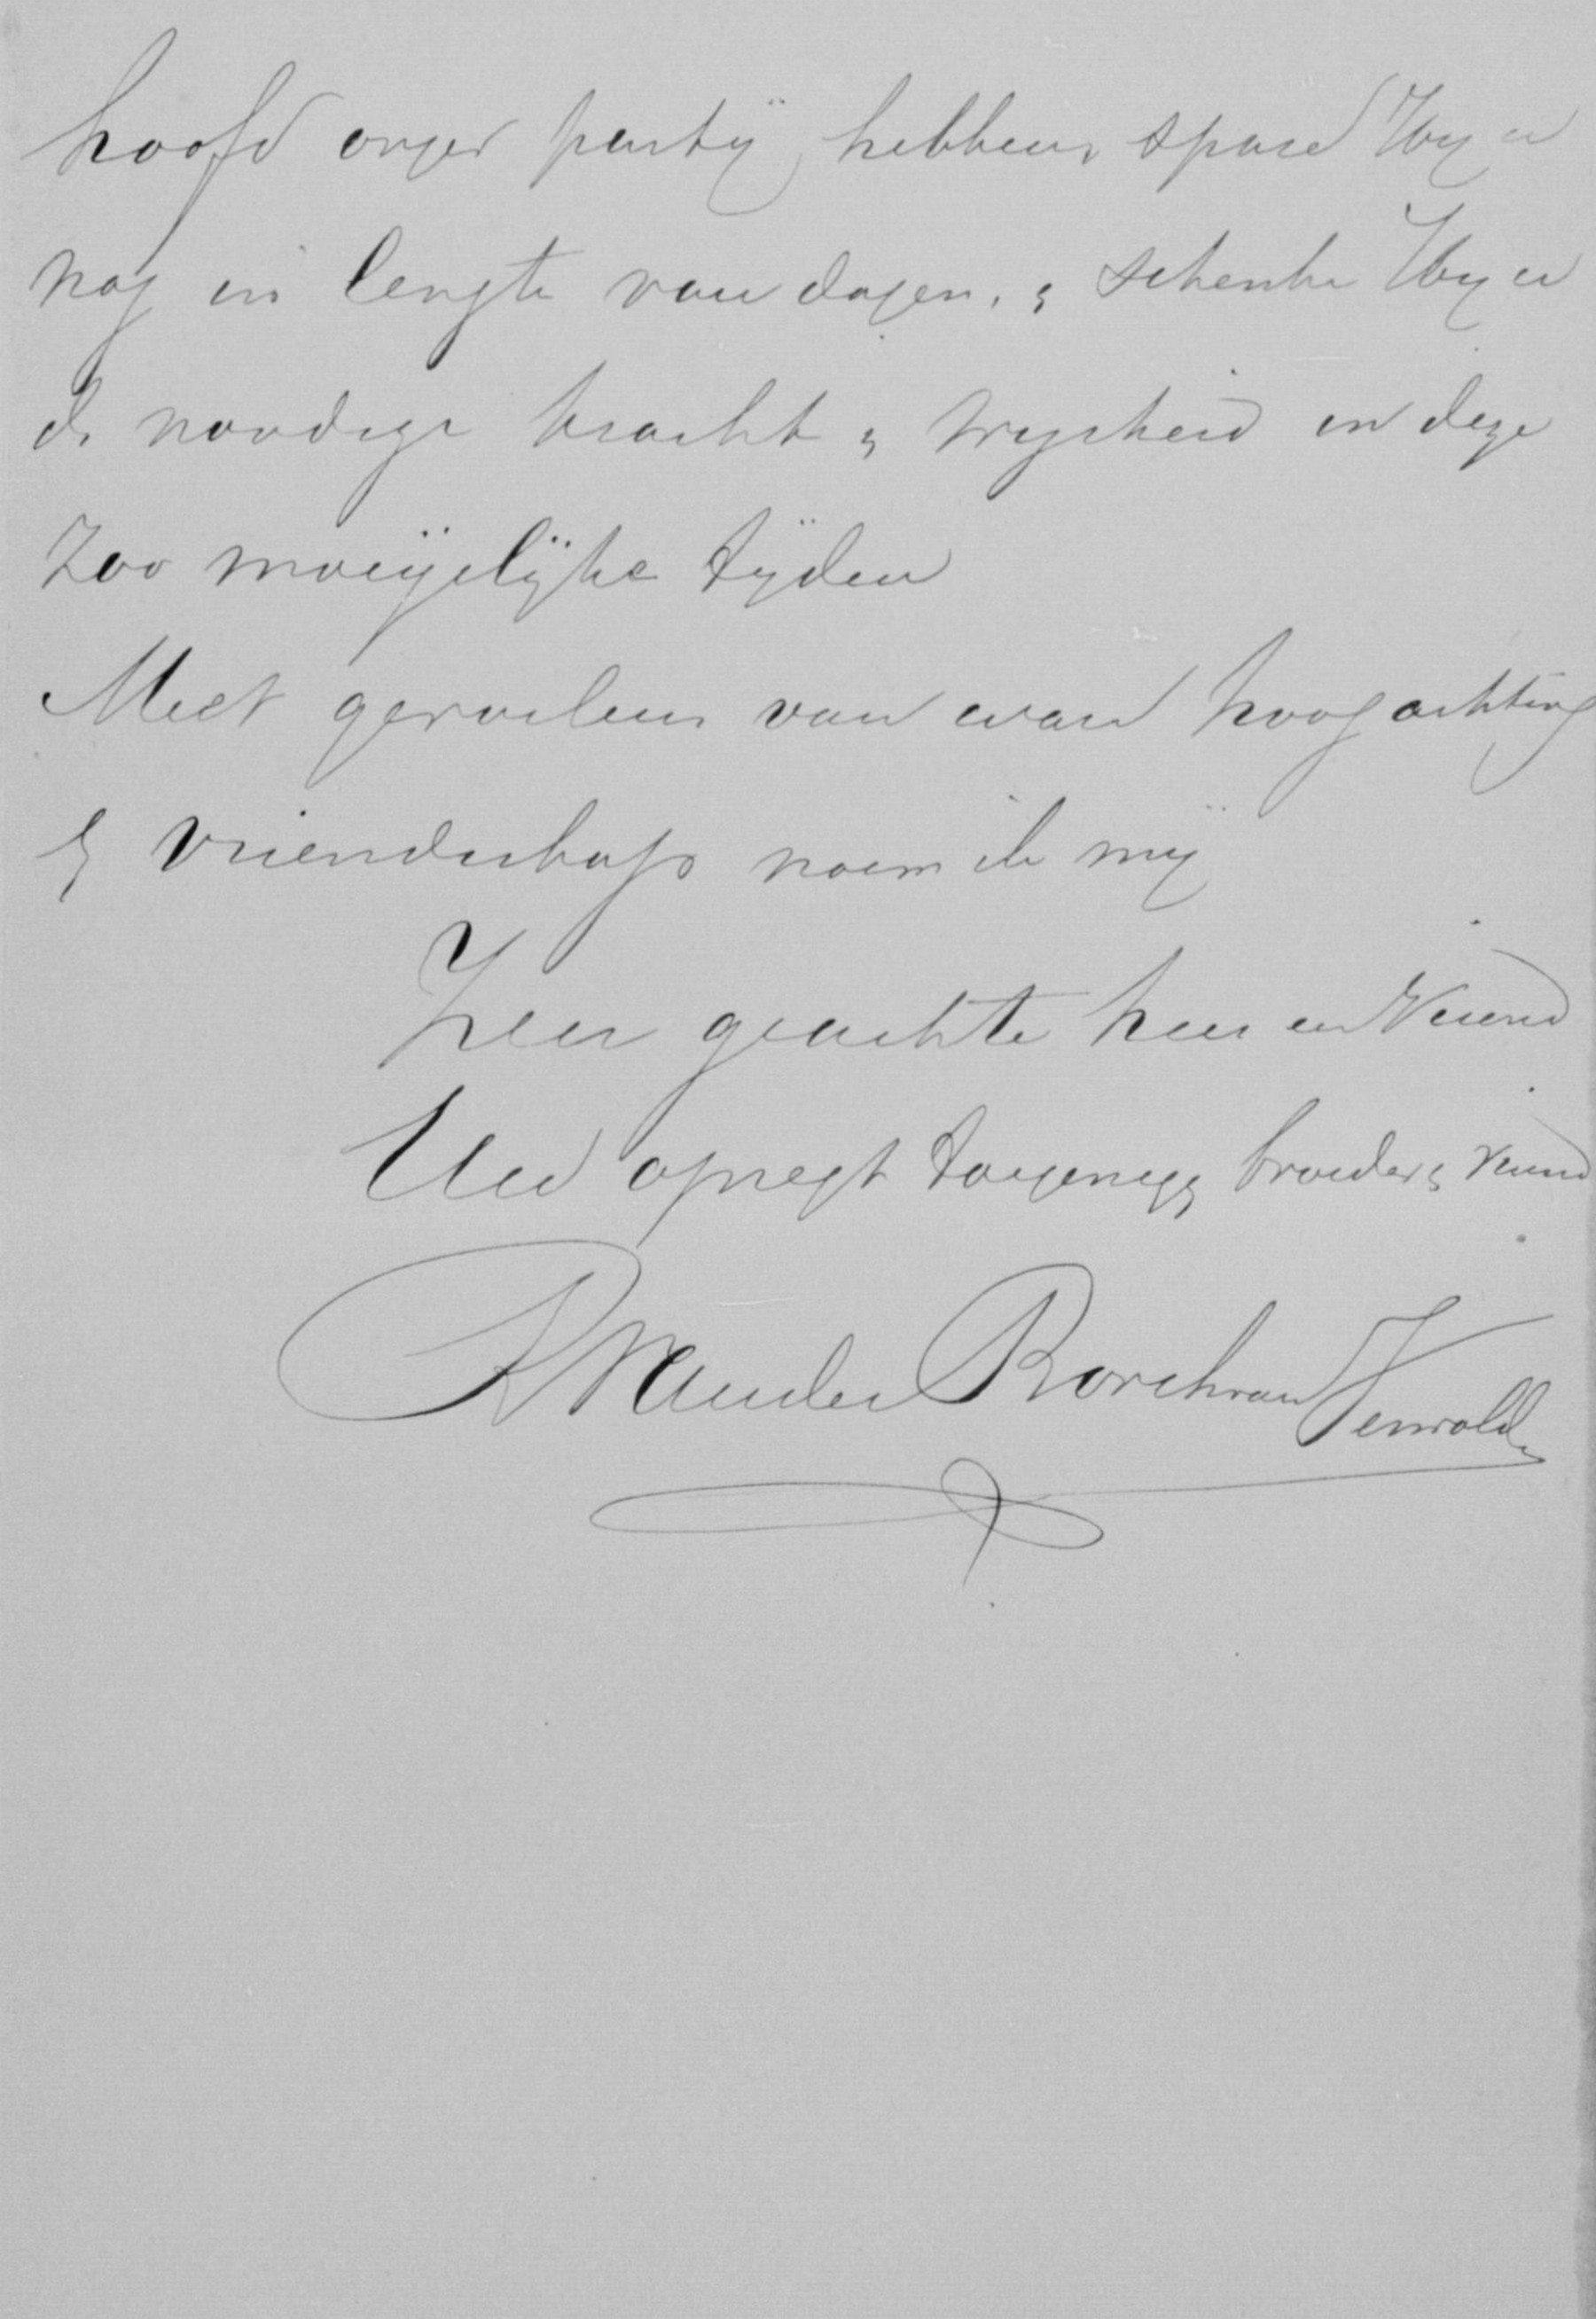 hoofd onzer partij, hebben, spare Hij u
nog in lengte van dagen, & schenke Hij u
de noodige kracht & wijsheid in deze
Zoo moeijelijke tijden
Met gevoelens van ware hoogachting
& vriendschap noem ik mij
Zeer geachte heer en Vriend
Uw opregt toegeneg broeder & vriend
van der Borch van Verwolde